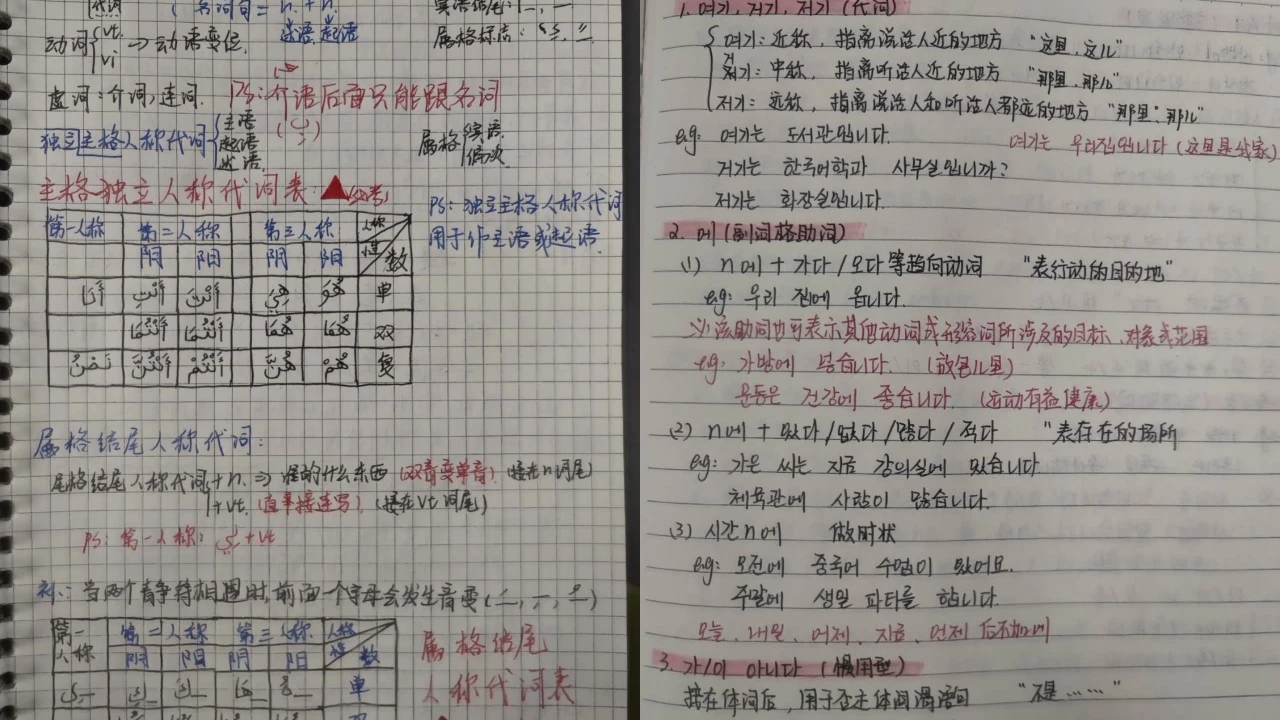 代词
名词句 = n. + n.
述语 起语
宾语结尾:
动词 { vt. vi → 动词变位
属格标志:
虚词:介词,连词. PS:介词后面只能跟名词
独立主格人称代词 { 主语 起语 述语
属格
偏次
主格独立人称代词表:▲
PS:独立主格人称代词
用于作主语或起语
第一人称 第二人称 第三人称 人称
阴 阳 阴 阳 性 数
أَنَا أَنْتِ أَنْتَ هِيَ هُوَ 单
أَنْتُمَا أَنْتُمَا هُمَا هُمَا 双
نَحْنُ أَنْتُنَّ أَنْتُمْ هُنَّ هُمْ 复
属格结尾人称代词:
属格结尾人称代词+n. ⇒ 谁的什么东西 (双音变单音). 接在n词尾
+vt. (直单接连写) (接在vt词尾)
PS:第一人称: +vt
补:当两个静符相遇时,前面一个字母会发生音变
第一人称 第二人称 第三人称 人称
阴 阳 阴 阳 性 数
单
属格结尾
人称代词表
1. 여기, 거기, 저기 (代词)
여기:近称,指离说话人近的地方 "这里,这儿"
거기:中称,指离听话人近的地方 "那里,那儿"
저기:远称,指离说话人和听话人都远的地方 "那里,那儿"
eg: 여기는 도서관입니다. 여기는 우리집입니다 (这里是我家)
거기는 한국어학과 사무실입니까?
저기는 화장실입니다.
2. 에 (副词格助词)
(1) n에 + 가다/오다 等趋向动词 "表行动的目的地"
eg: 우리 집에 옵니다.
※该助词也可表示其他动词或形容词所涉及的目标、对象或范围
eg: 가방에 넣습니다. (放包儿里)
운동은 건강에 좋습니다. (运动有益健康)
(2) n에 + 있다/없다/많다/적다 "表存在的场所
eg: 가은 씨는 지금 강의실에 있습니다
체육관에 사람이 많습니다.
(3) 时间n에 做时状
eg: 오전에 중국어 수업이 있어요.
주말에 생일 파티를 합니다.
오늘, 내일, 어제, 지금, 언제 后不加에
3. 가/이 아니다 (惯用型)
接在体词后,用于否定体词谓语句 "不是……"